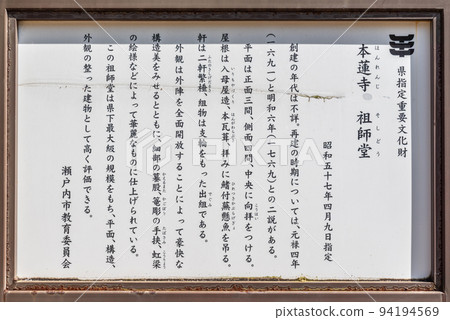 県指定重要文化財
本蓮寺　祖師堂
ほんれんじ　そしどう
昭和五十七年四月九日指定
創建の年代は不詳。再建の時期については、元禄四年
(一六九一)と明和六年(一七六九)との二説がある。
平面は正面三間、側面四間、中央に向拝をつける。
屋根は入母屋造、本瓦葺、拝みに鰭付蕪懸魚を吊る。
軒は二軒繁棰、組物は支輪をもった出組である。
外観は外陣を全面開放することによって豪快な
構造美をみせるとともに、細部の蟇股、篭彫の手挟、虹梁
の絵様などによって華麗なものに仕上げられている。
この祖師堂は県下最大級の規模をもち、平面、構造、
外観の整った建物として高く評価できる。
瀬戸内市教育委員会
PIXTA
94194569